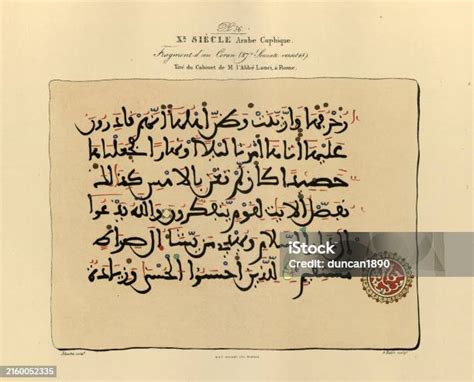 Xe. SIÈCLE Arabe Cuphique.
Fragment d'un Coran
Tiré du Cabinet de M. l'Abbé Lanci, à Rome.
زخرفها وازينت وظن أهلها أنهم قادرون
عليها أتاها أمرنا ليلا أو نهارا فجعلناها
حصيدا كأن لم تغن بالأمس كذلك
نفصل الآيات لقوم يتفكرون والله يدعوا
إلى دار السلام ويهدي من يشاء إلى صراط
مستقيم للذين أحسنوا الحسنى وزيادة
iStock
Credit: duncan1890
2160052335